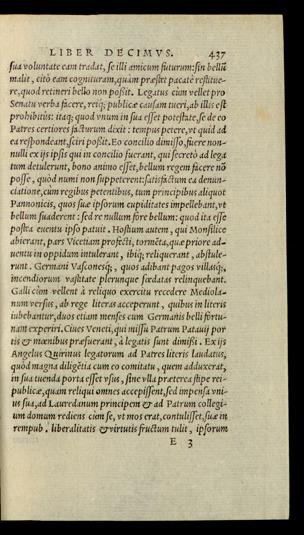 LIBER DECIMVS. 437
sua voluntate eam tradat, se illi amicum futurum: sin bellū
malit, citò eam cogniturum, quàm præstet pacatè restitue-
re, quod retineri bello non possit. Legatus cùm vellet pro
Senatu verba facere, reiq́; publicæ causam tueri, ab illis est
prohibitus: itaq; quod vnum in sua esset potestate, se de eo
Patres certiores facturum dixit: tempus petere, vt quid ad
ea respondeant, sciri possit. Eo concilio dimisso, fuere non-
nulli ex ijs ipsis qui in concilio fuerant, qui secretò ad lega
tum detulerunt, bono animo esset, bellum regem facere nō
posse, quòd numi non suppeterent: satisfactum ea denun-
ciatione, cùm regibus petentibus, tum principibus aliquot
Pannonicis, quos suæ ipsorum cupiditates impellebant, vt
bellum suaderent: sed re nullum fore bellum: quod ita esse
postea euentu ipso patuit. Hostium autem, qui Monsilice
abierant, pars Vicetiam profecti, tormēta, quæ priore ad-
uentu in oppidum intulerant, ibiq́; reliquerant, abstule-
runt. Germani Vasconesq́;, quos adibant pagos villasq́;,
incendiorum vastitate plerunque fœdatas relinquebant.
Galli cùm vellent à reliquo exercitu recedere Mediola-
num versus, ab rege literas acceperunt, quibus in literis
iubebantur, duos etiam menses cum Germanis belli fortu-
nam experiri. Ciues Veneti, qui missu Patrum Patauij por
tis & mœnibus præfuerant, à legatis sunt dimissi. Ex ijs
Angelus Quirinus legatorum ad Patres literis laudatus,
quòd magna diligētia cum eo comitatu, quem adduxerat,
in sua tuenda porta esset vsus, sine vlla præterea stipe rei-
publicæ, quam reliqui omnes accepissent, sed impensa vni-
us sua, ad Lauredanum principem & ad Patrum collegi-
um domum rediens cùm se, vt mos erat, contulisset, suæ in
rempub. liberalitatis & virtutis fructum tulit, ipsorum
E 3